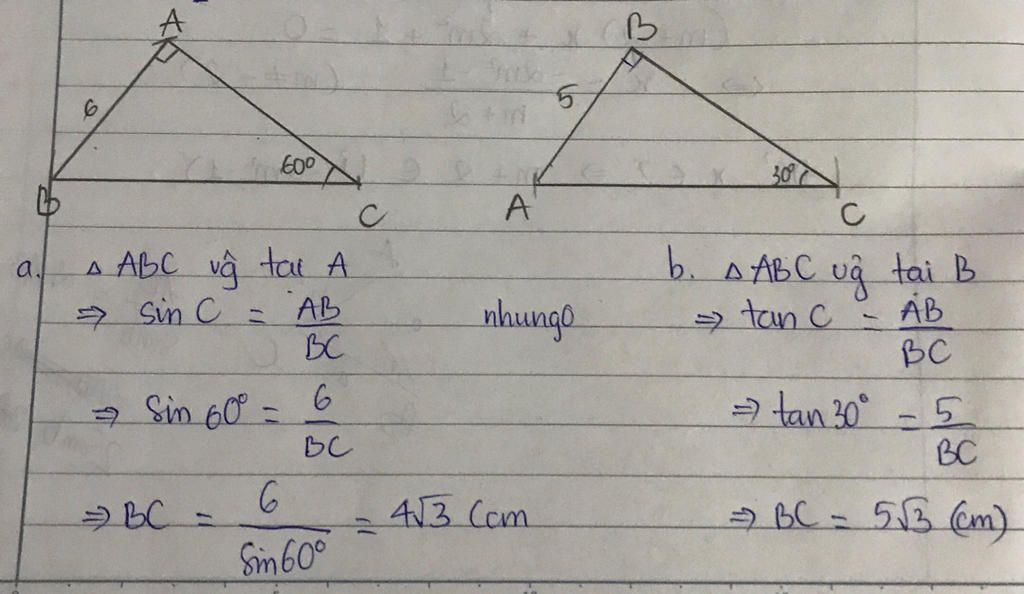 A
6
60°
B
C
B
5
30°
A
C
a. △ ABC vg̀ tại A
⇒ sin C = AB/BC
⇒ sin 60° = 6/BC
⇒ BC = 6/sin60° = 4√3 (cm
nhungo
b. △ ABC vg̀ tại B
⇒ tan C = AB/BC
⇒ tan 30° = 5/BC
⇒ BC = 5√3 (cm)